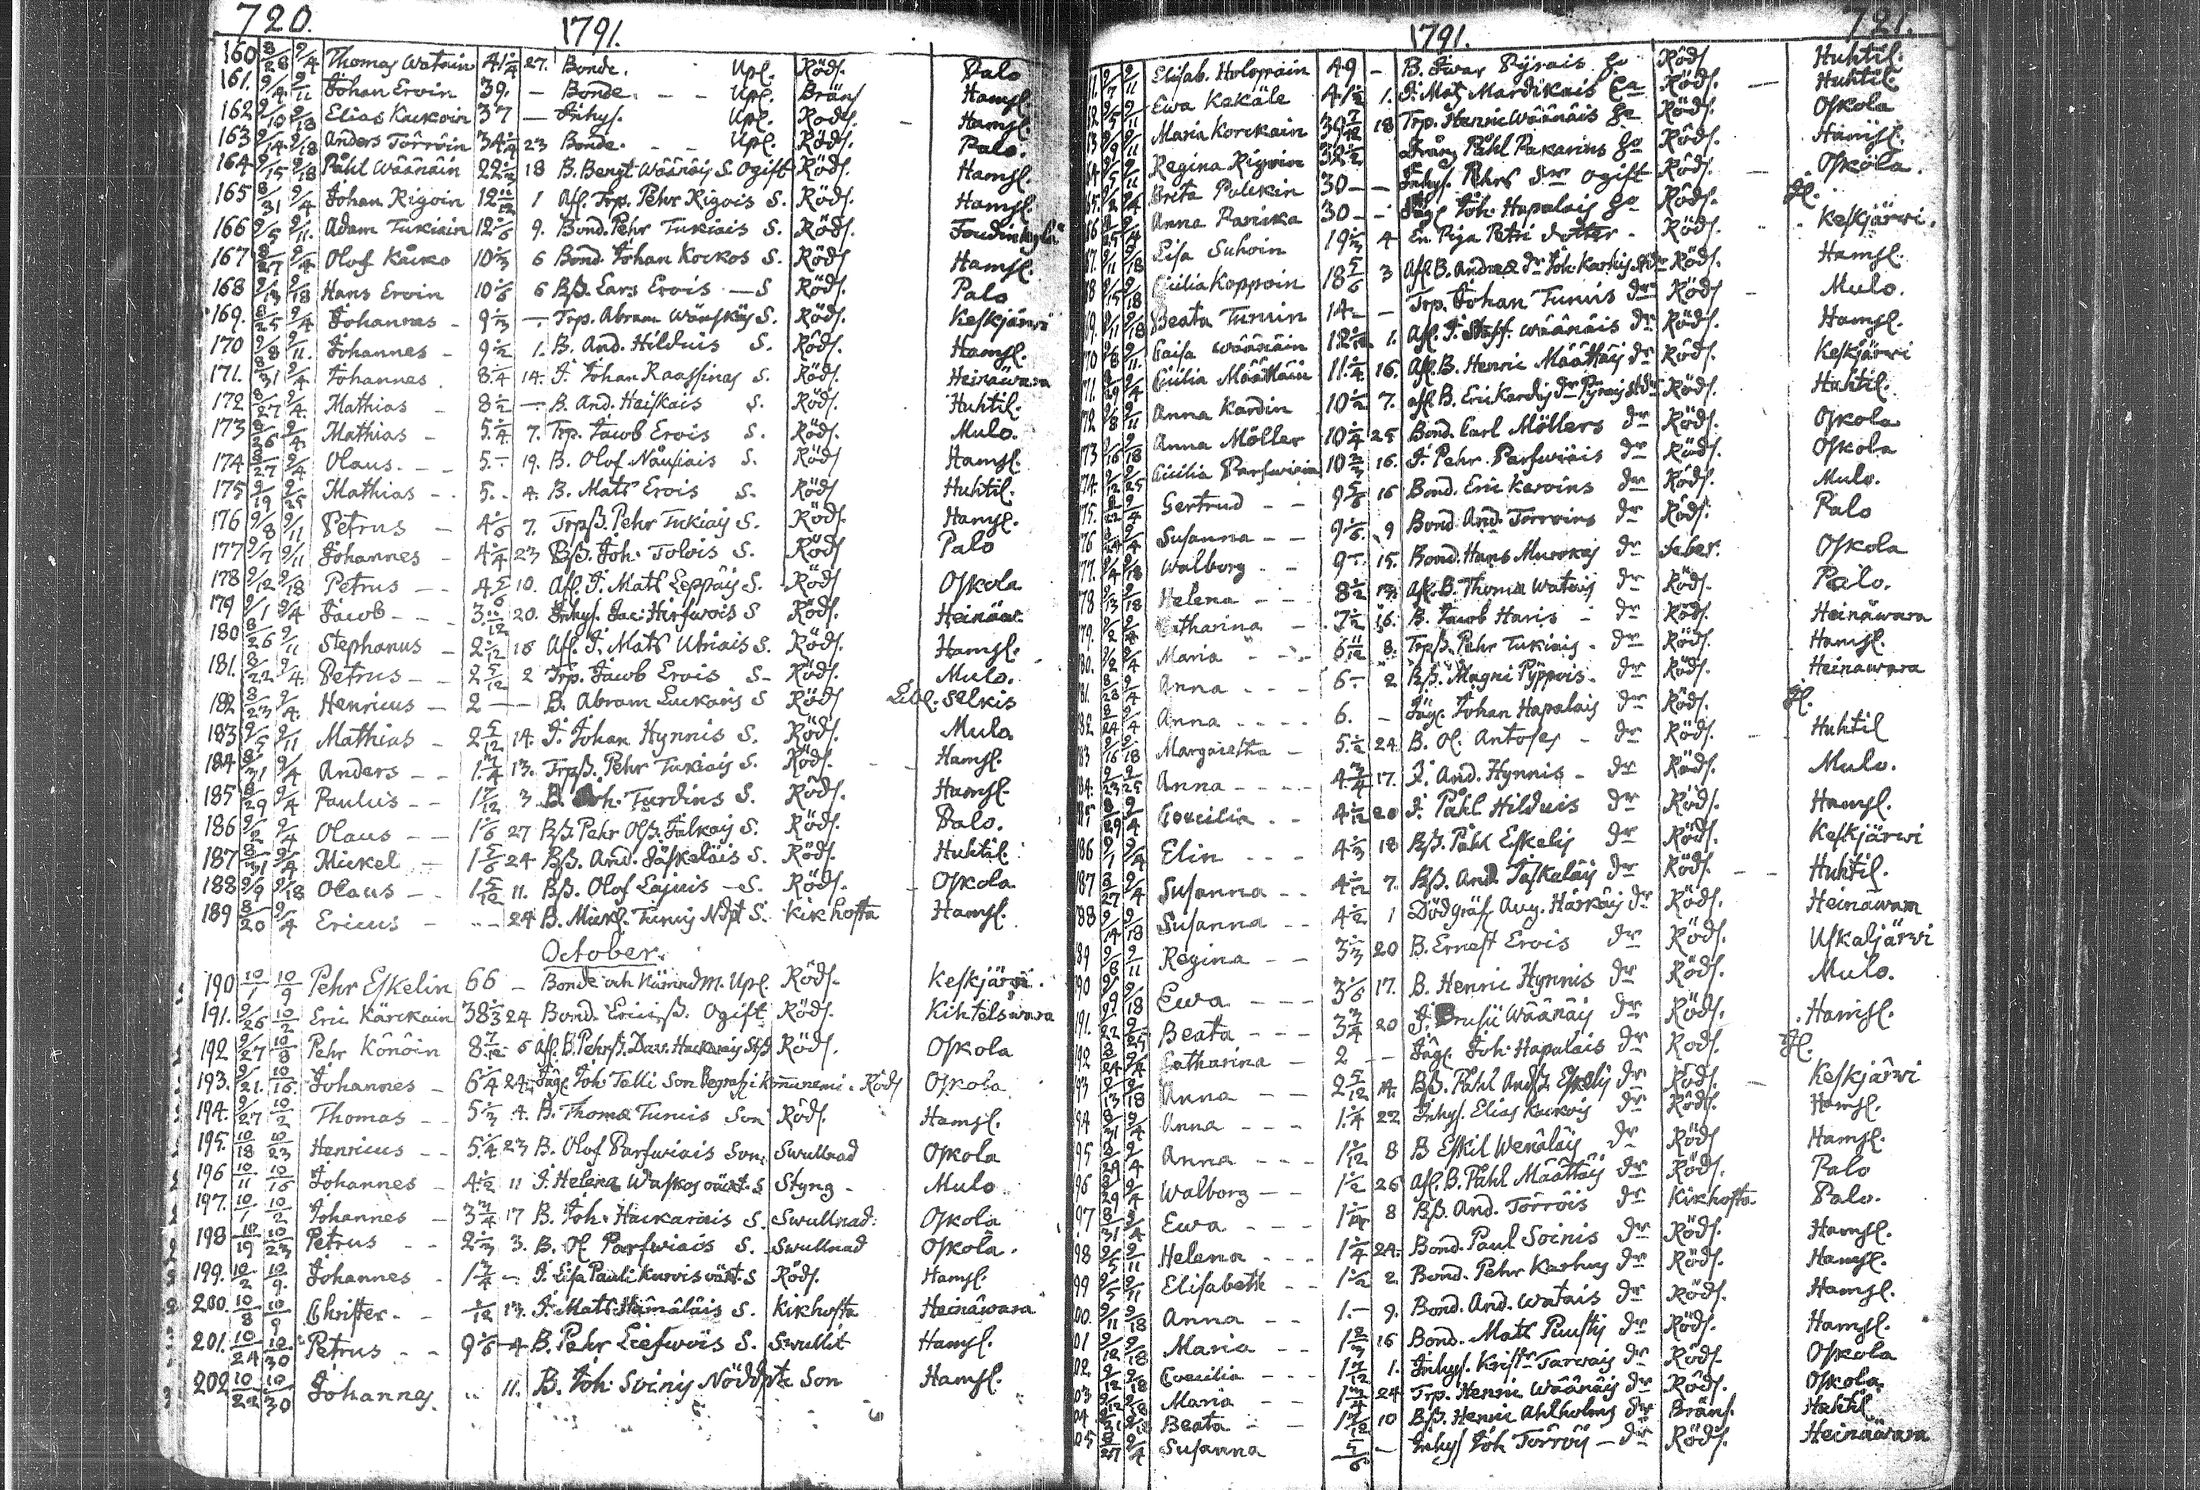 720. 1791.
160 8/28 9/4 Thomas Watain 41 1/4 27. Bonde. Upl. Röds. Palo
161. 9/4 9/11 Johan Eroin 39. – Bonde. – – Upl. Bräns Hamsl.
162 9/10 9/18 Elias Kuckoin 37 – Inhys. Upl. Rods. – Hamsl.
163 9/14 9/18 Anders Törröin 34 1/4 23 Bonde. – – Upl. Röds. Palo.
164 9/15 9/18 Påhl Wäänäin 22 1/2 18 B. Bengt Wäänäis S. Ogift Röds. Hamsl.
165 8/31 9/4 Johan Rigoin 12 11/12 1 Afl. Trp. Pehr Rigois S. Röds. Hamsl.
166 9/5 9/11. Adam Tukiain 12 1/6 9. Bond. Pehr Tukiais S. Röds.
167 8/27 9/4 Olof Kåcko 10 1/3 6 Bond. Johan Kockos S. Röds Hamsl.
168 9/13 9/18 Hans Eroin 10 1/6 6 Bß. Lars Erois – S Röds. Palo
169. 8/25 9/4 Johannes – 9 1/3 – Trp. Abram Wänskäs S. Röds. Keskjärwi
170 9/8 9/11. Johannes – 9 1/2 1. B. And. Hilduis S. Röds. Hamsl.
171. 8/31 9/4 Johannes. 8 1/4 14. I. Johan Raassinas S. Röds. Heinäwara
172 8/27 9/4. Mathias – 8 1/2 – B. And. Haiskais S. Röds. Huhtil.
173 8/26 9/4. Mathias – 5 1/4 7. Trp. Jacob Erois S. Röds. Mulo.
174 8/27 9/4 Olaus. – – 5. – 19. B. Olof Nousiais S. Röds Hamsl.
175 9/19 9/25 Mathias – . 5. . 4. B. Mats Erois S. Röds Huhtil.
176 9/8 9/11 Petrus – 4 1/6 7. Trpß. Pehr Tukiais S. Röds. Hamsl.
177 9/7 9/11 Johannes – 4 1/4 23 Bß. Joh. Tolois S. Röds Palo
178 9/12 9/18 Petrus – – 4 5/6 10. Afl. I. Mats Leppäis S. Röds Oskola
179 9/1 9/4 Jacob – – 3 11/12 20. Inhys. Jac. Hirfwois S Röds. Heinäw.
180 8/26 9/11 Stephanus – 2 5/12 16 Afl. I. Mats Uhiais S. Röds. Hamsl.
181. 8/22 9/4 Petrus – – 2 5/12 2 Trp. Jacob Erois S – Röds. Mulo.
182 8/23 9/4. Henricus – 2 – – B. Abram Luckaris S Röds Libl. Selkis
183 9/5 9/11 Mathias – 2 5/12 14. I. Johan Hynnis S. Röds. Mulo.
184 8/31 9/4 Anders – – 1 3/4 13. Trpß. Pehr Tukiais S. Röds. Hamsl.
185 8/29 9/4 Paulus – – 1 7/12 3 B. Joh. Turdins S. Röds. Hamsl.
186 9/2 9/4 Olaus – – 1 1/6 27 Bß. Pehr Olß. Jalkais S. Röds. Palo.
187 8/31 9/4 Mickel – 1 5/6 24 Bß. And. Jäskeläis S. Röds. Huhtil.
188 9/9 9/18 Olaus – – 1 5/12 11. Bß. Olof Lajuis – S. Röds. – Oskola
189 8/20 9/4 Ericus – – – 24 B. Mickl. Turuis Ndpt S. Kikhosta Hamsl.
October.
190 10/1 10/9 Pehr Eskelin 66 – Bonde och Nämndm. Upl. Röds. Keskjärwi.
191. 9/26 10/2 Eric Kärckäin 38 1/3 24 Bond. Ericiß. Ogift Röds. Kihtelswara
192 9/27 10/8 Pehr Könöin 8 7/12 6 Afl. B. Pehrß. Dav. Hackarais Stß Röds. Oskola
193. 9/21. 10/16. Johannes – 6 1/4 24. Jägl. Joh. Telli Son Begrafs i Kommunerni. Röds Oskola
194. 9/27 10/2 Thomas – – 5 1/3 4. B. Thomæ Turuis Son Röds. Hamsl.
195. 10/18 10/23 Henricus – – 5 1/4 23 B. Olof Parfwiais Son. Swullnad Oskola
196 10/11 10/16 Johannes – 4 1/2 11 I. Helena Waskos oäckt. S Styng – Mulo
197. 10/1 10/2 Johannes – 3 3/4 17 B. Joh. Hackarais S. Swullnad. Oskola
198 10/19 10/23 Petrus – – 2 1/3 3. B. Ol. Parfwiais S. Swullnad Oskola.
199. 10/2 10/9. Johannes – 1 3/4 – I. Lisa Pauli Kurvis oäkt. S Röds. Hamsl.
200. 10/8 10/9 Christer. – 5/12 13. I. Mats Hämäläis S. Kikhosta Heinäwara
201. 10/24 10/30 Petrus – – 9 1/6 4 B. Pehr Liefwois S. Swullit Hamsl.
202 10/22 10/30 Johannes. .. 11. B. Joh. Soinis Nöddpte Son Hamsl.
1791. 721.
9/7 9/11 Elisab. Holopain 49 – B. Iwar Pyrais Ho Röds Huhtil.
9/5 9/11 Ewa Kekäle 41 1/2 1. I. Mats Mardikais Ea Röds. – Huhtil.
Maria Korckain 39 7/12 18 Trp. Henric Wäänäis Ho Röds. Oskola
9/9 9/11 Regina Rigoin 32 1/2 Dräng Påhl Pakarins Ho Röds. Hamsl.
9/5 9/11 Brita Pulckin 30 – – Inhys. Pehrs Dr ogift Röds. – Oskola.
Anna Panika 30 – – Jägl. Joh. Hapalais Ho Röds. Jl.
8/25 9/4 Lisa Suhoin 19 1/3 4 En Piga Petri dotter. Röds. Keskjärwi.
9/11 9/18 Cicilia Koppoin 18 5/6 3 Afl. B. Andreæ dr Joh. Karhus Stdr Röds. Hamsl.
9/15 9/18 Beata Turuin 14 – – Trp. Johan Turuis dr Röds – Mulo.
9/11 9/18 Caisa Wäänäin 12 1. Afl. I. Staff. Wäänäis dr Röds. Hamsl.
70 9/8 9/11 Cicilia Määttäin 11 1/4 16. Afl. B. Henric Määttäis dr Röds. Keskjärwi
71. 9/4 Anna Kardin 10 1/2 7. afl. B. Eric Kardis dr Pyrais Stdr Röds. Huhtil.
72 9/8 9/11 Anna Möller 10 1/4 25 Bond. Carl Möllers dr Röds. Oskola
73 9/16 9/18 Cicilia Parfwiain 10 2/3 16. I. Pehr Parfwiais dr Röds. Oskola
74. 9/12 9/25 Gertrud – – 9 5/6 16 Bond. Eric Karvins dr Röds. Mulo.
75. 8/22 9/4 Susanna – – 9 1/6 9 Bond. And. Törroins dr Röds. Palo
76 8/24 9/4 Walborg – – 9 – 15. Bond. Hans Murokas dr Feber. Oskola
77. 9/4 9/18 Helena – – 8 1/2 13. Afl. B. Thomæ Watais dr Röds. Palo.
78 9/13 9/18 Catharina – 7 1/2 16. B. Jacob Haris – dr Röds. Heinäwara
79. 9/2 9/4 Maria – – 6 11/12 8. Trpß. Pehr Tukiais. dr Röds. Hamsl.
80. 9/2 9/4 Anna – – – 6 – 2 Bß. Magni Pyppois. dr Röds. Heinawara
81. 8/28 9/4 Anna – – – – 6. – Jägl. Johan Hapalais dr Röds. Jl.
82 8/24 9/4 Margaretha – 5 1/2 24 B. Ol. Antoses – dr Röds. – Huhtil
83 9/16 9/18 Anna – – – – 4 3/4 17. I. And. Hynnis – dr Röds. Mulo.
84. 9/23 9/25 Coecilia – – 4 1/12 20 I. Påhl Hilduis dr Röds. Hamsl.
85 8/29 9/4 Elin – – – 4 1/3 18 Bß. Påhl Eskelis dr Röds. Keskjärwi
86 9/1 9/4 Susanna – – 4 1/12 7. Bß. And. Jäskeläis dr Röds. – – Huhtil.
87 8/27 9/4 Susanna – – 4 1/2 1 Dödgräf. Aug. Härkäis dr Röds. Heinäwara
88 9/14 9/18 Regina – – 3 1/3 20 B. Ernest Erois dr Röds. Uskaljärwi
89 9/8 9/11 Ewa – – – 3 1/6 17. B. Henric Hynnis dr Röds. Mulo.
90 9/9 9/18 Beata – – – 3 3/4 20 I. Brusii Wäänäis dr Röds. Hamsl.
91. 9/22 9/25 Catharina – 2 – – Jägl. Joh. Hapalais dr Rods. Jl.
92 8/24 9/4 Anna – – – 2 5/12 14. Bß. Påhl Andß. Eskelis dr Röds. – Keskjärwi
93 9/13 9/18 Anna – – – 1 1/4 22 Inhys. Elias Kuckois dr Röds. Hamsl.
94 8/31 9/4 Anna – – – 1 5/12 8 B Eskil Wenäläis dr Röds Hamsl.
95 8/29 9/4 Walborg – – 1 1/2 26 Afl. B. Påhl Määttäis dr Röds. Palo
96 8/29 9/4 Ewa – – – 1 1/4 8 Bß. And. Törröis dr Kikhosta Palo.
97 8/31 9/4 Helena – – – 1 1/4 24. Bond. Paul Soinis dr Röds. Hamsl.
98 9/5 9/11 Elisabeth – – 1 1/2 2 Bond. Pehr Karhus dr Röds. Hamsl.
99 9/5 9/11 Anna – – 1. – 9. Bond. And. Watais dr Röds. Hamsl.
00. 9/11 9/18 Maria – – 1 2/3 16 Bond. Mats Puustis dr Röds. Hamsl.
01 9/12 9/18 Coecilia – – 1 7/12 1. Inhys. Kristr Tarvais dr Röds. Oskola
02. 9/12 9/18 Maria – – 1 3/4 24 Trp. Henric Wäänäis dr Röds. Oskola
03 Beata – – 1 7/12 10 Bß. Henric Ahlholms dr Bräns. Huhtl.
05 8/27 9/4 Susanna 5/6 – Inhys Joh Törröis – dr Röds. Heinäwara